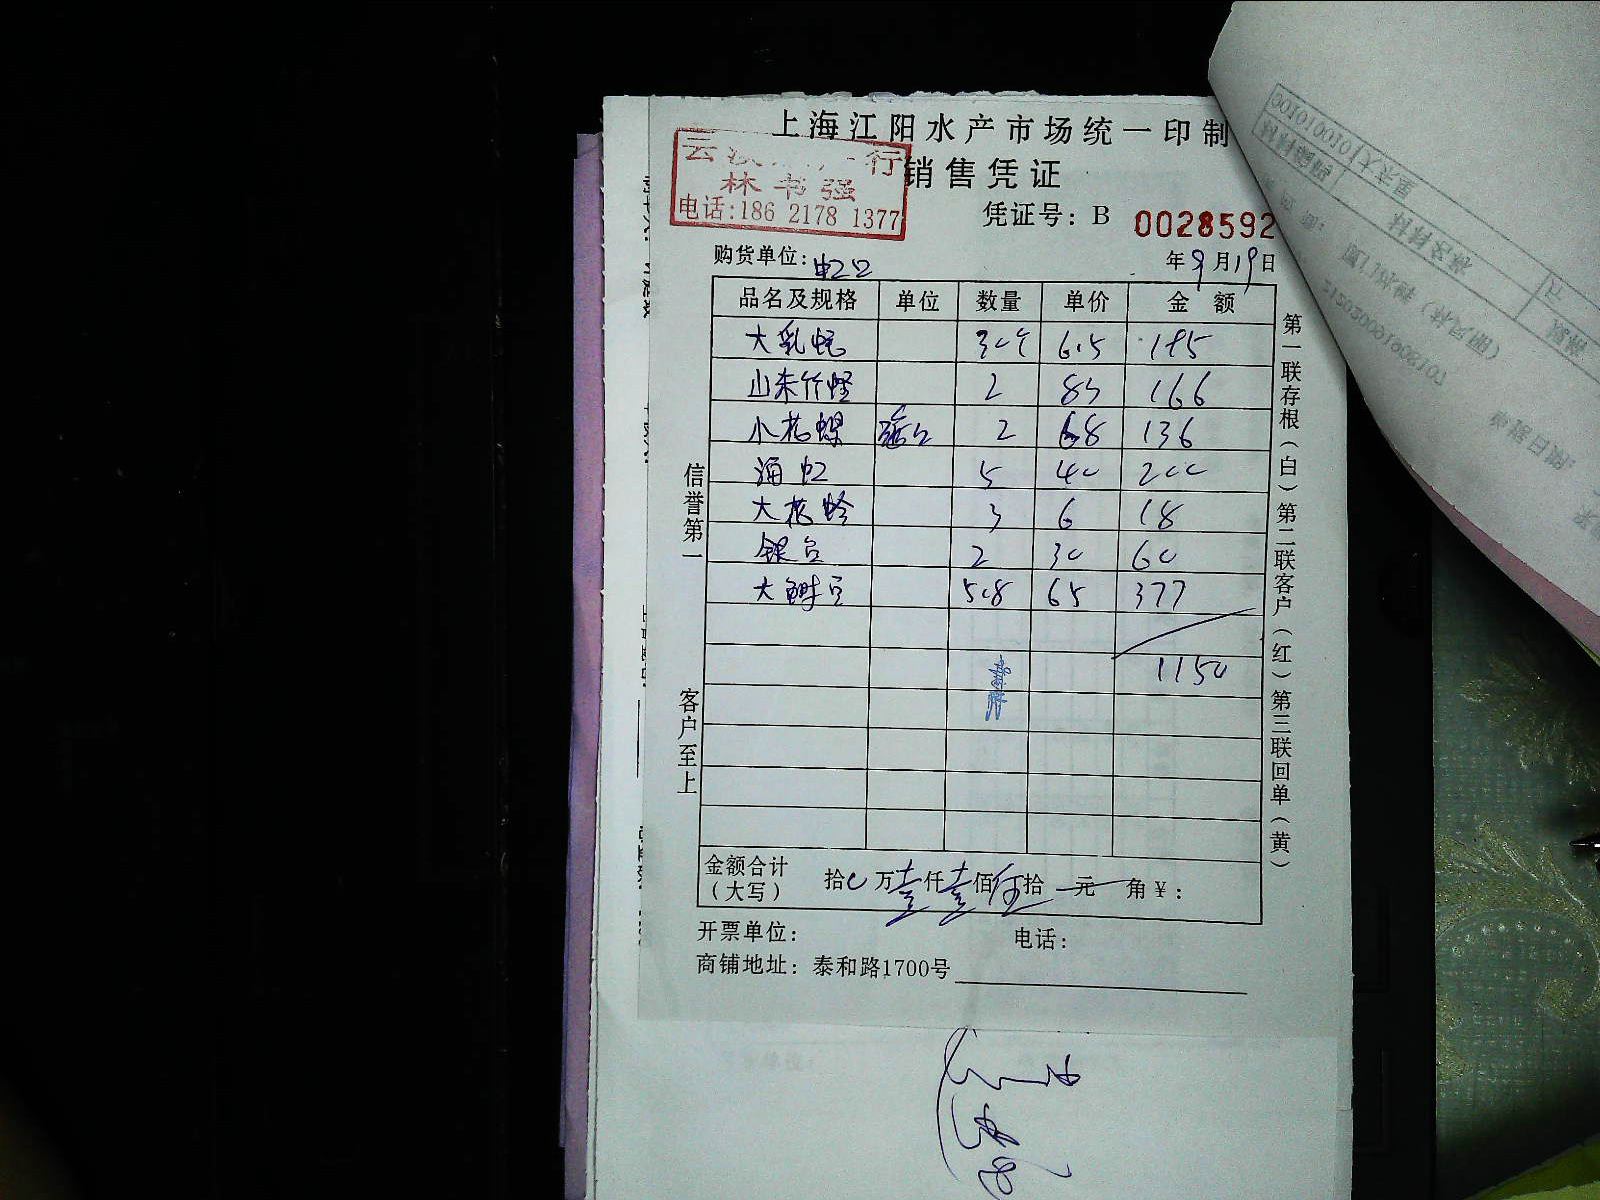 上海江阳水产市场统一印制
销售凭证
林书强
电话:186 2178 1377
凭证号: B 0028592
购货单位:
年9月19日
品名及规格 单位 数量 单价 金额
大乳蛏 30个 6.5 195
山东竹蛏 2 83 166
小花螺 2 68 136
海虹 5 40 200
大花蛤 3 6 18
银鱼 2 30 60
5.8 65 377
1150
金额合计(大写) 拾0万壹仟壹佰伍拾元角¥:
开票单位: 电话:
商铺地址: 泰和路1700号
信誉第一
客户至上
第一联存根(白)第二联客户(红)第三联回单(黄)